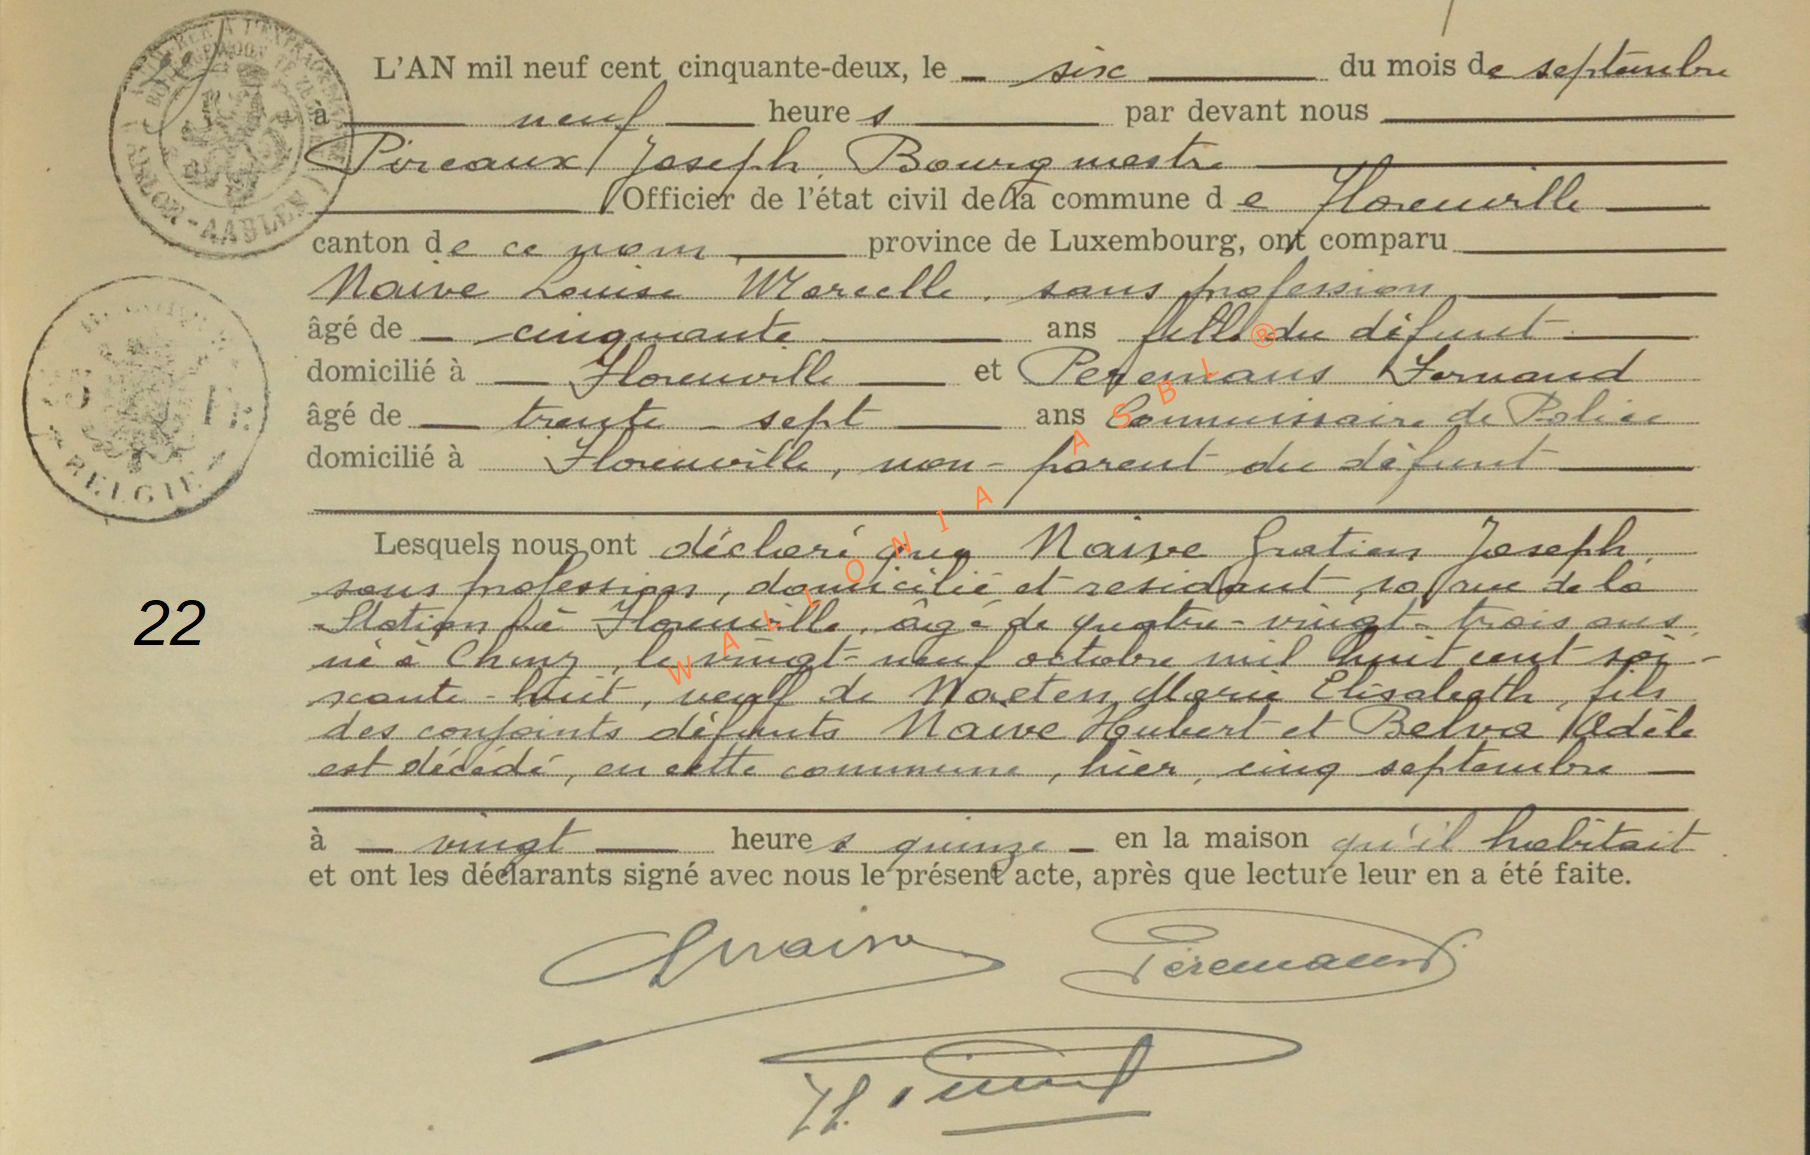 L'AN mil neuf cent cinquante-deux, le six du mois de septembre
à neuf heures par devant nous
Pireaux Joseph, Bourgmestre
Officier de l'état civil de la commune de Florenville
canton de ce nom, province de Luxembourg, ont comparu
Naive Louise Marcelle, sans profession
âgé de cinquante ans fille du défunt
domicilié à Florenville et Peremans Fernand
âgé de trente-sept ans Commissaire de Police
domicilié à Florenville, non-parent du défunt
Lesquels nous ont déclaré que Naive Gratien Joseph,
sans profession, domicilié et résidant, 10, rue de la
Station, à Florenville, âgé de quatre-vingt-trois ans,
né à Chiny, le vingt-neuf octobre mil huit cent soi-
xante-huit, veuf de Naeten Marie Elisabeth, fils
des conjoints défunts Naive Hubert et Belva Adèle
est décédé, en cette commune, hier, cinq septembre
à vingt heures quinze en la maison qu'il habitait
et ont les déclarants signé avec nous le présent acte, après que lecture leur en a été faite.
Peremans
22
ARLON-AARLEN
BELGIE
WALLONIA ASBL ®